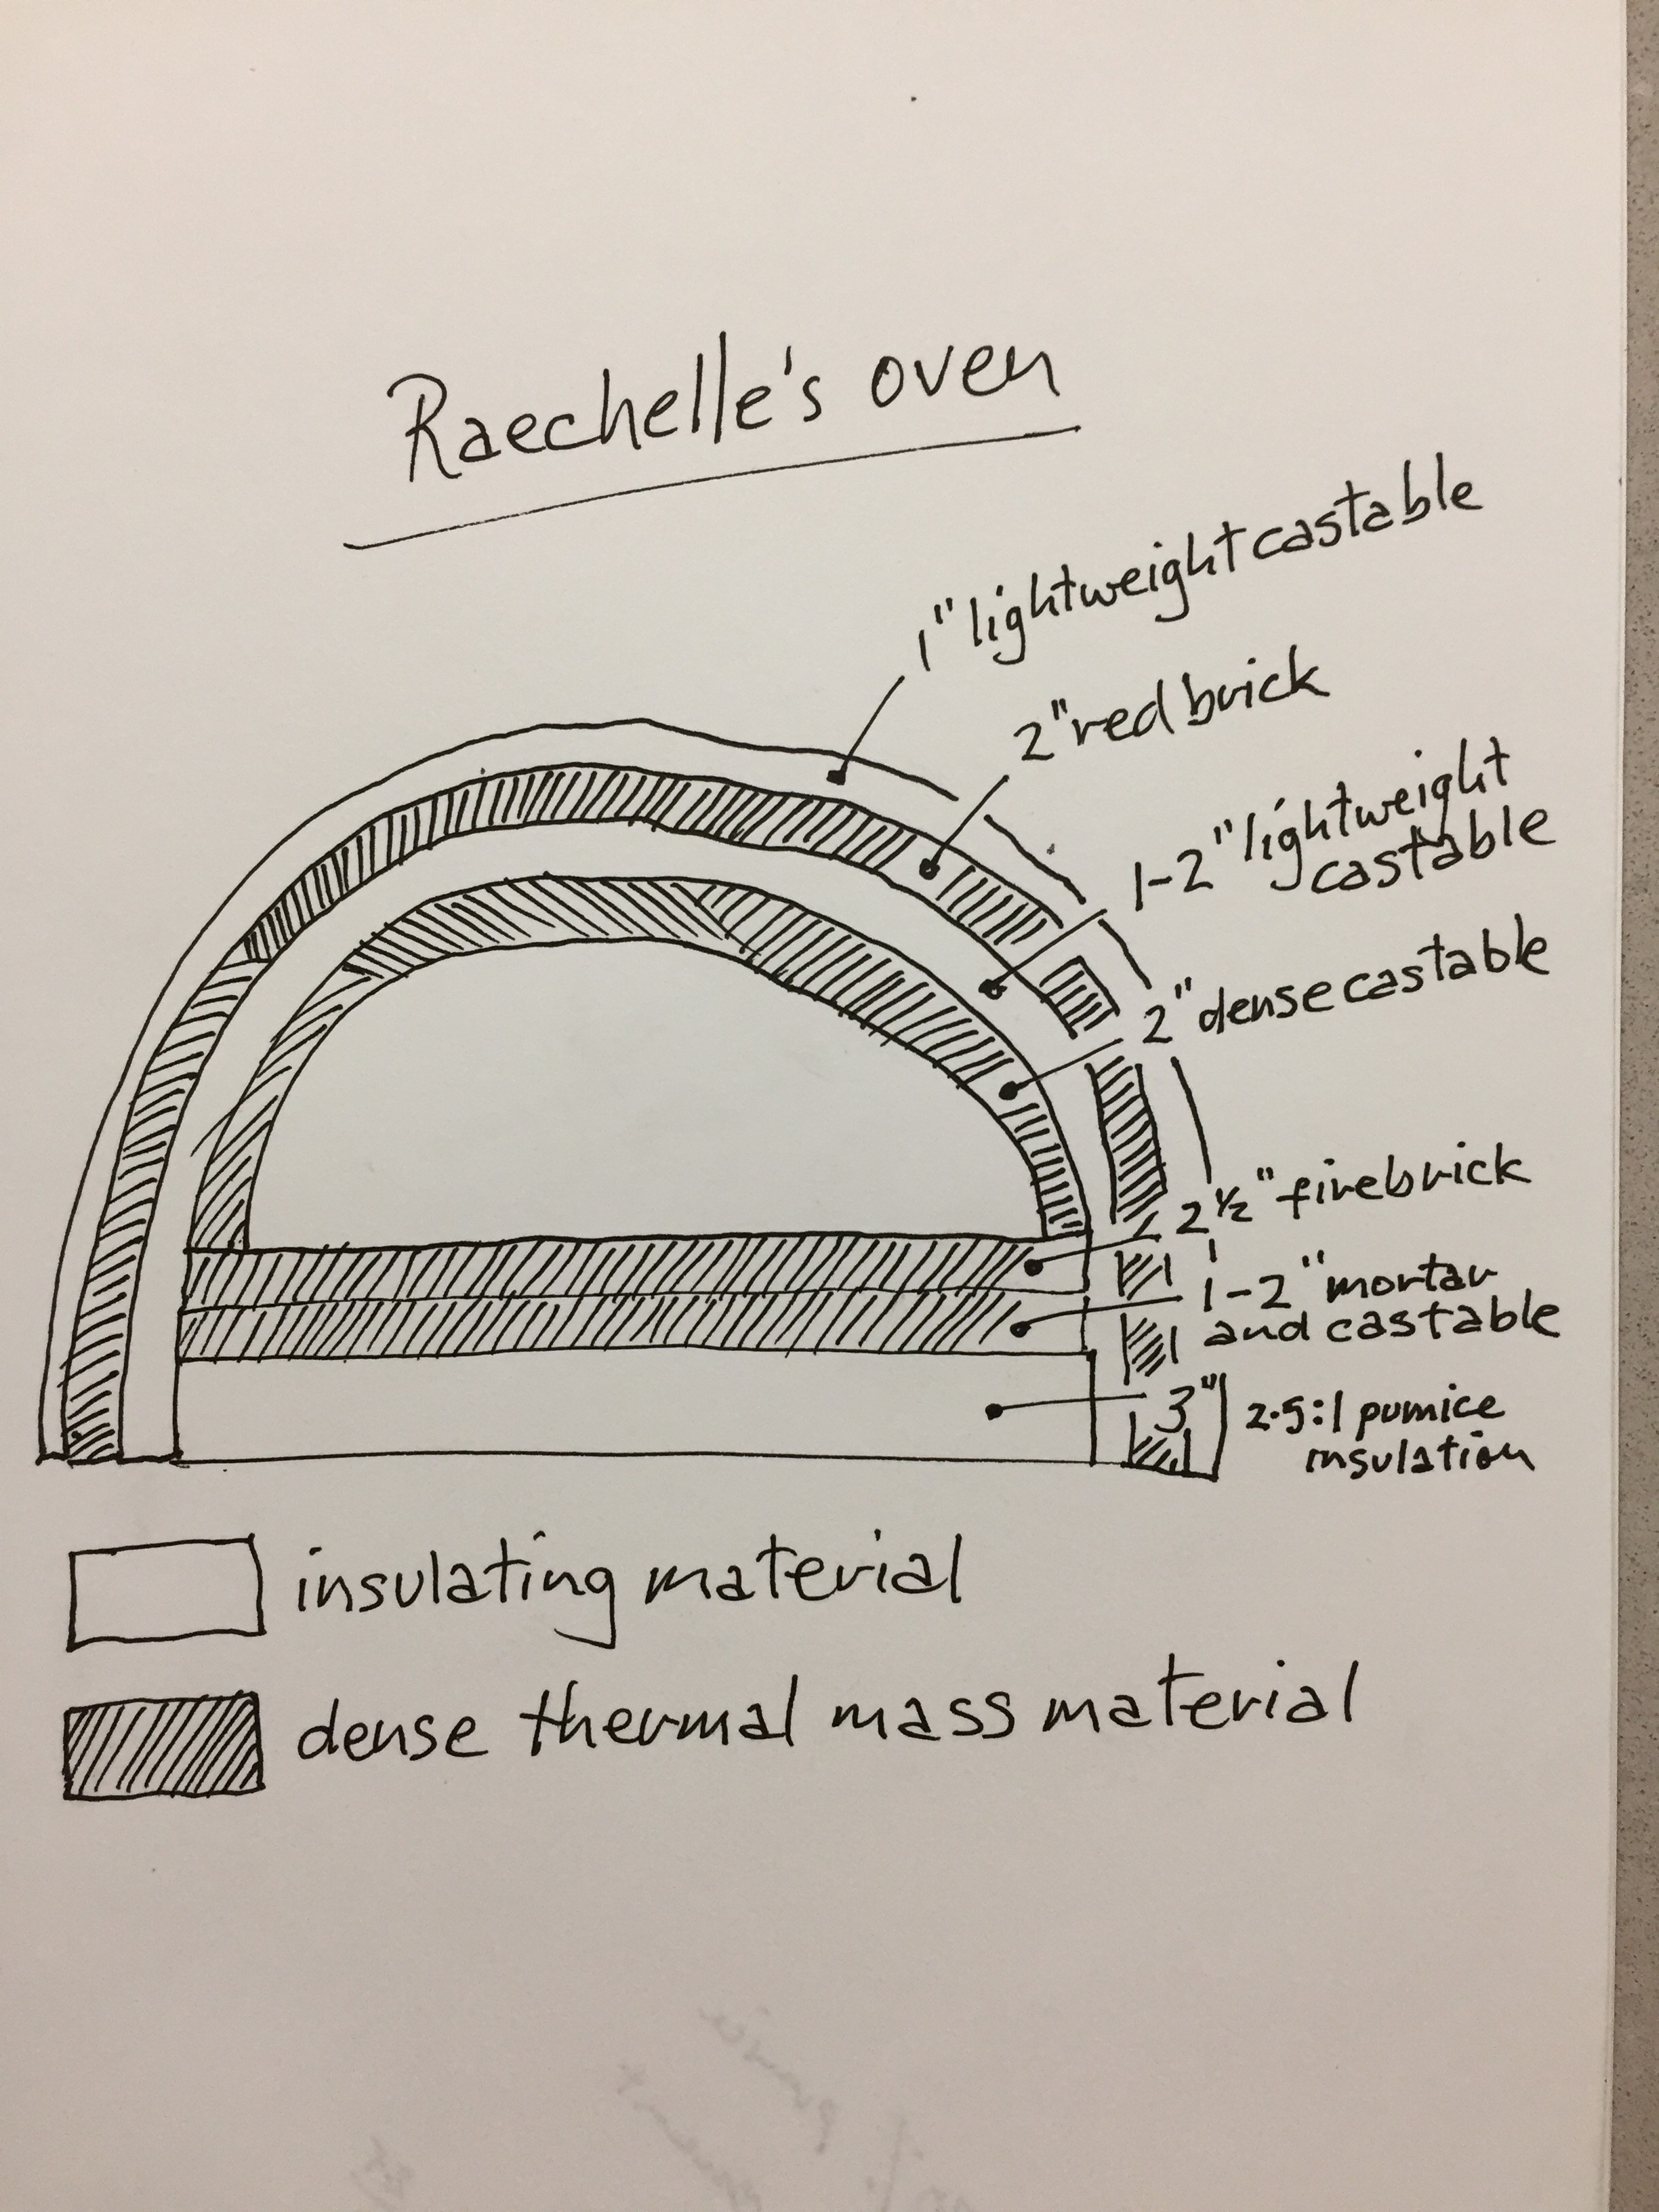 Raechelle's oven
1" lightweight castable
2" red brick
1-2" lightweight
castable
2" dense castable
2 ½" firebrick
1-2" mortar
and castable
3" 2.5:1 pumice
insulation
insulating material
dense thermal mass material